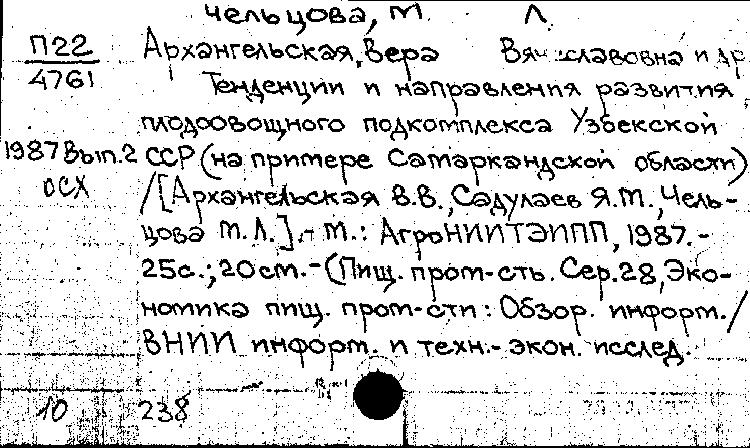 Чельцова, М. Л.
П22
4761
Архангельская, Вера Вячеславовна и др
Тенденции и направления развития
плодоовощного подкомплекса Узбекской
1987 Вып. 2
ОСХ
ССР (на примере Самаркандской области)
/[Архангельская В.В., Садулаев Я.М., Чель-
цова М.Л.].- М.: АгроНИИТЭИПП, 1987.-
25с.; 20см.- (Пищ. пром-сть. Сер.28, Эко-
номика пищ. пром-сти: Обзор. информ./
ВНИИ информ. и техн.- экон. исслед.
10 238